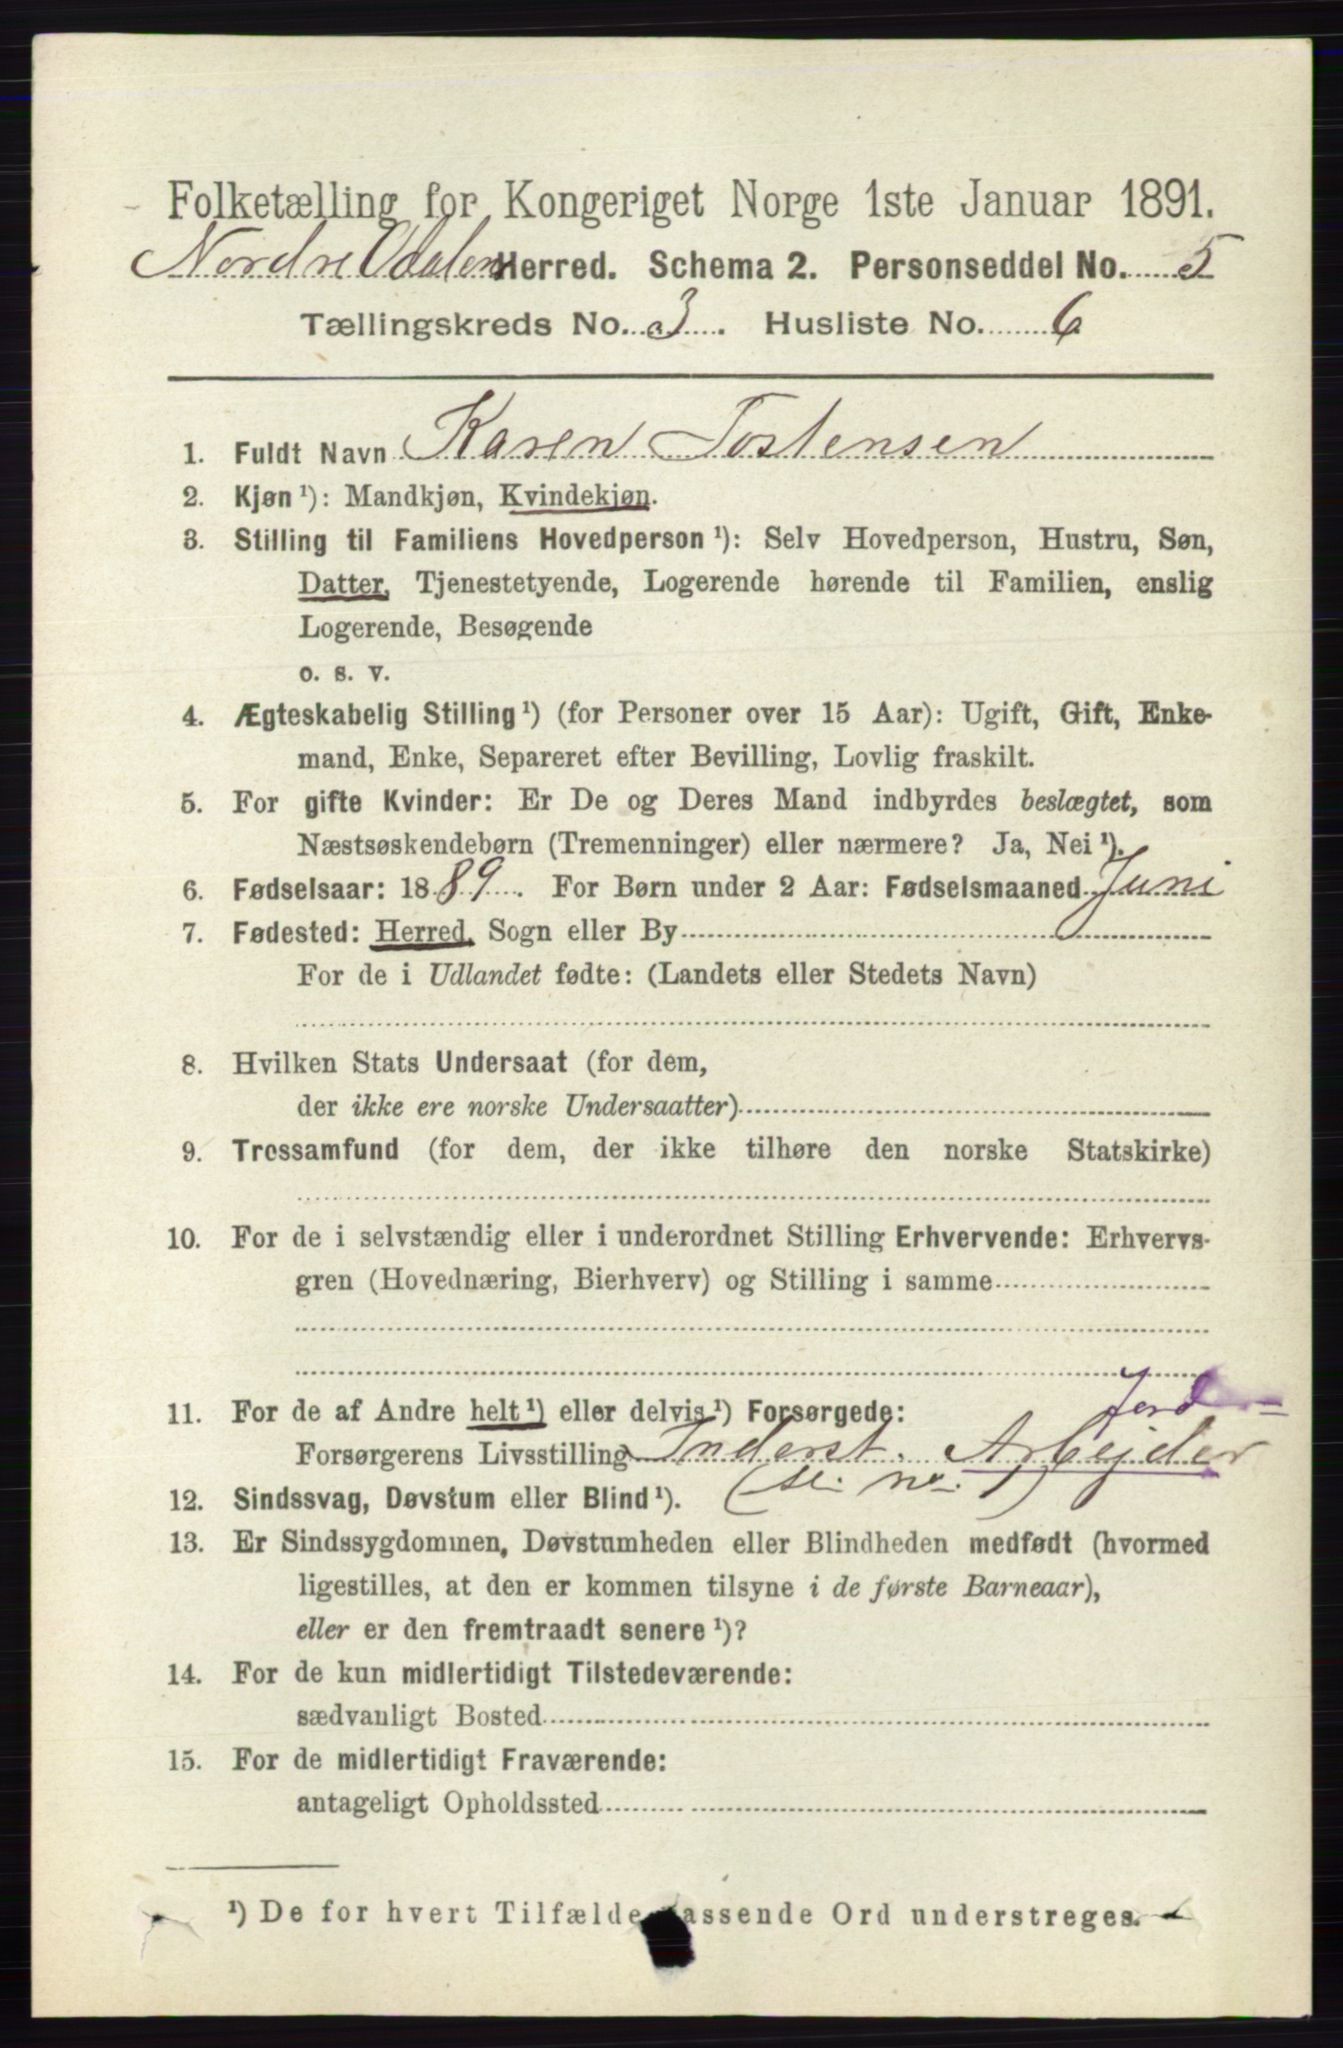 Folketælling for Kongeriget Norge 1ste Januar 1891.
Nordre Udalen Herred. Schema 2. Personseddel No. 5
Tællingskreds No. 3. Husliste No. 6
1. Fuldt Navn Karen Tostensen
2. Kjøn ¹): Mandkjøn, Kvindekjøn.
3. Stilling til Familiens Hovedperson ¹): Selv Hovedperson, Hustru, Søn,
Datter, Tjenestetyende, Logerende hørende til Familien, enslig
Logerende, Besøgende
o. s. v.
4. Ægteskabelig Stilling ¹) (for Personer over 15 Aar): Ugift, Gift, Enke-
mand, Enke, Separeret efter Bevilling, Lovlig fraskilt.
5. For gifte Kvinder: Er De og Deres Mand indbyrdes beslægtet, som
Næstsøskendebørn (Tremenninger) eller nærmere? Ja, Nei ¹).
6. Fødselsaar: 1889. For Børn under 2 Aar: Fødselsmaaned Juni
7. Fødested: Herred, Sogn eller By
For de i Udlandet fødte: (Landets eller Stedets Navn)
8. Hvilken Stats Undersaat (for dem,
der ikke ere norske Undersaatter)
9. Trossamfund (for dem, der ikke tilhøre den norske Statskirke)
10. For de i selvstændig eller i underordnet Stilling Erhvervende: Erhvervs-
gren (Hovednæring, Bierhverv) og Stilling i samme
Jord
11. For de af Andre helt ¹) eller delvis ¹) Forsørgede:
Forsørgerens Livsstilling Inderst. Arbejder
(se no. 1)
12. Sindssvag, Døvstum eller Blind ¹).
13. Er Sindssygdommen, Døvstumheden eller Blindheden medfødt (hvormed
ligestilles, at den er kommen tilsyne i de første Barneaar),
eller er den fremtraadt senere ¹)?
14. For de kun midlertidigt Tilstedeværende:
sædvanligt Bosted
15. For de midlertidigt Fraværende:
antageligt Opholdssted
¹) De for hvert Tilfælde passende Ord understreges.